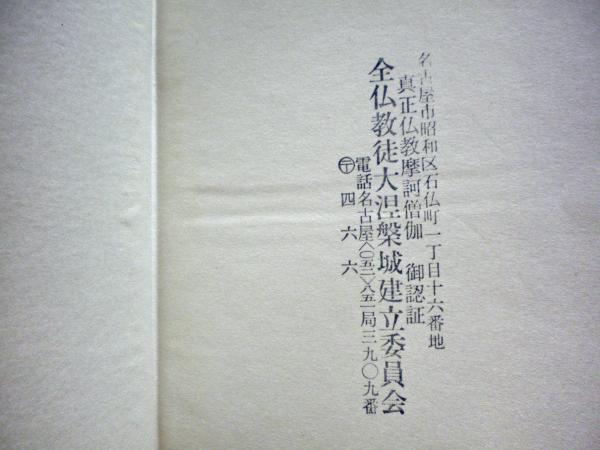 名古屋市昭和区石仏町一丁目十六番地
真正仏教摩訶僧伽 御認証
全仏教徒大涅槃城建立委員会
電話名古屋<〇五二>八五一局三九〇九番
〒四六六